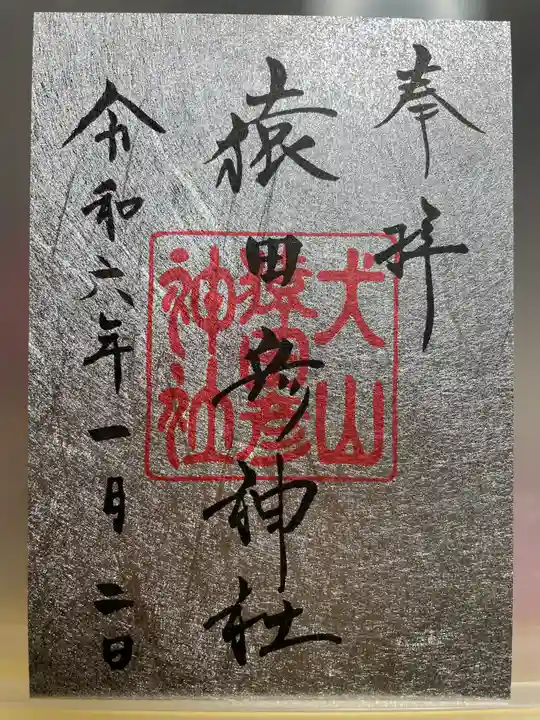 奉拝
猿田彦神社
令和六年一月二日
犬山
猿田彦
神社